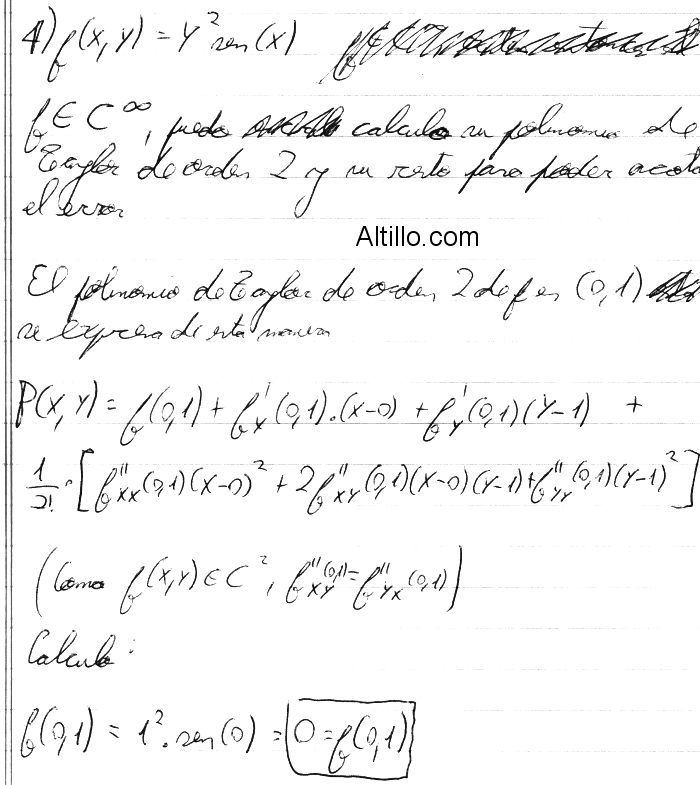 4) f(x,y) = y² sen(x)
f ∈ C^∞, puedo calcular su polinomio de
Taylor de orden 2 y su resto para poder acota
el error
Altillo.com
El polinomio de Taylor de orden 2 de f en (0,1)
se expresa de esta manera
P(x,y) = f(0,1) + f'x(0,1).(x-0) + f'y(0,1)(y-1) +
1/2! · [f''xx(0,1)(x-0)² + 2f''xy(0,1)(x-0)(y-1)+f''yy(0,1)(y-1)²]
(Como f(x,y) ∈ C², f''xy(0,1)=f''yx(0,1))
Calculo:
f(0,1) = 1².sen(0) = 0=f(0,1)